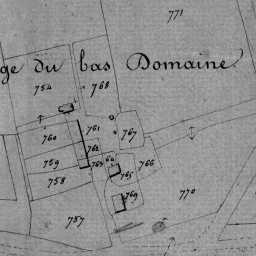 771
ge du bas Domaine
754
768
760
761
767
762
759
763
64
766
765
758
769
770
757